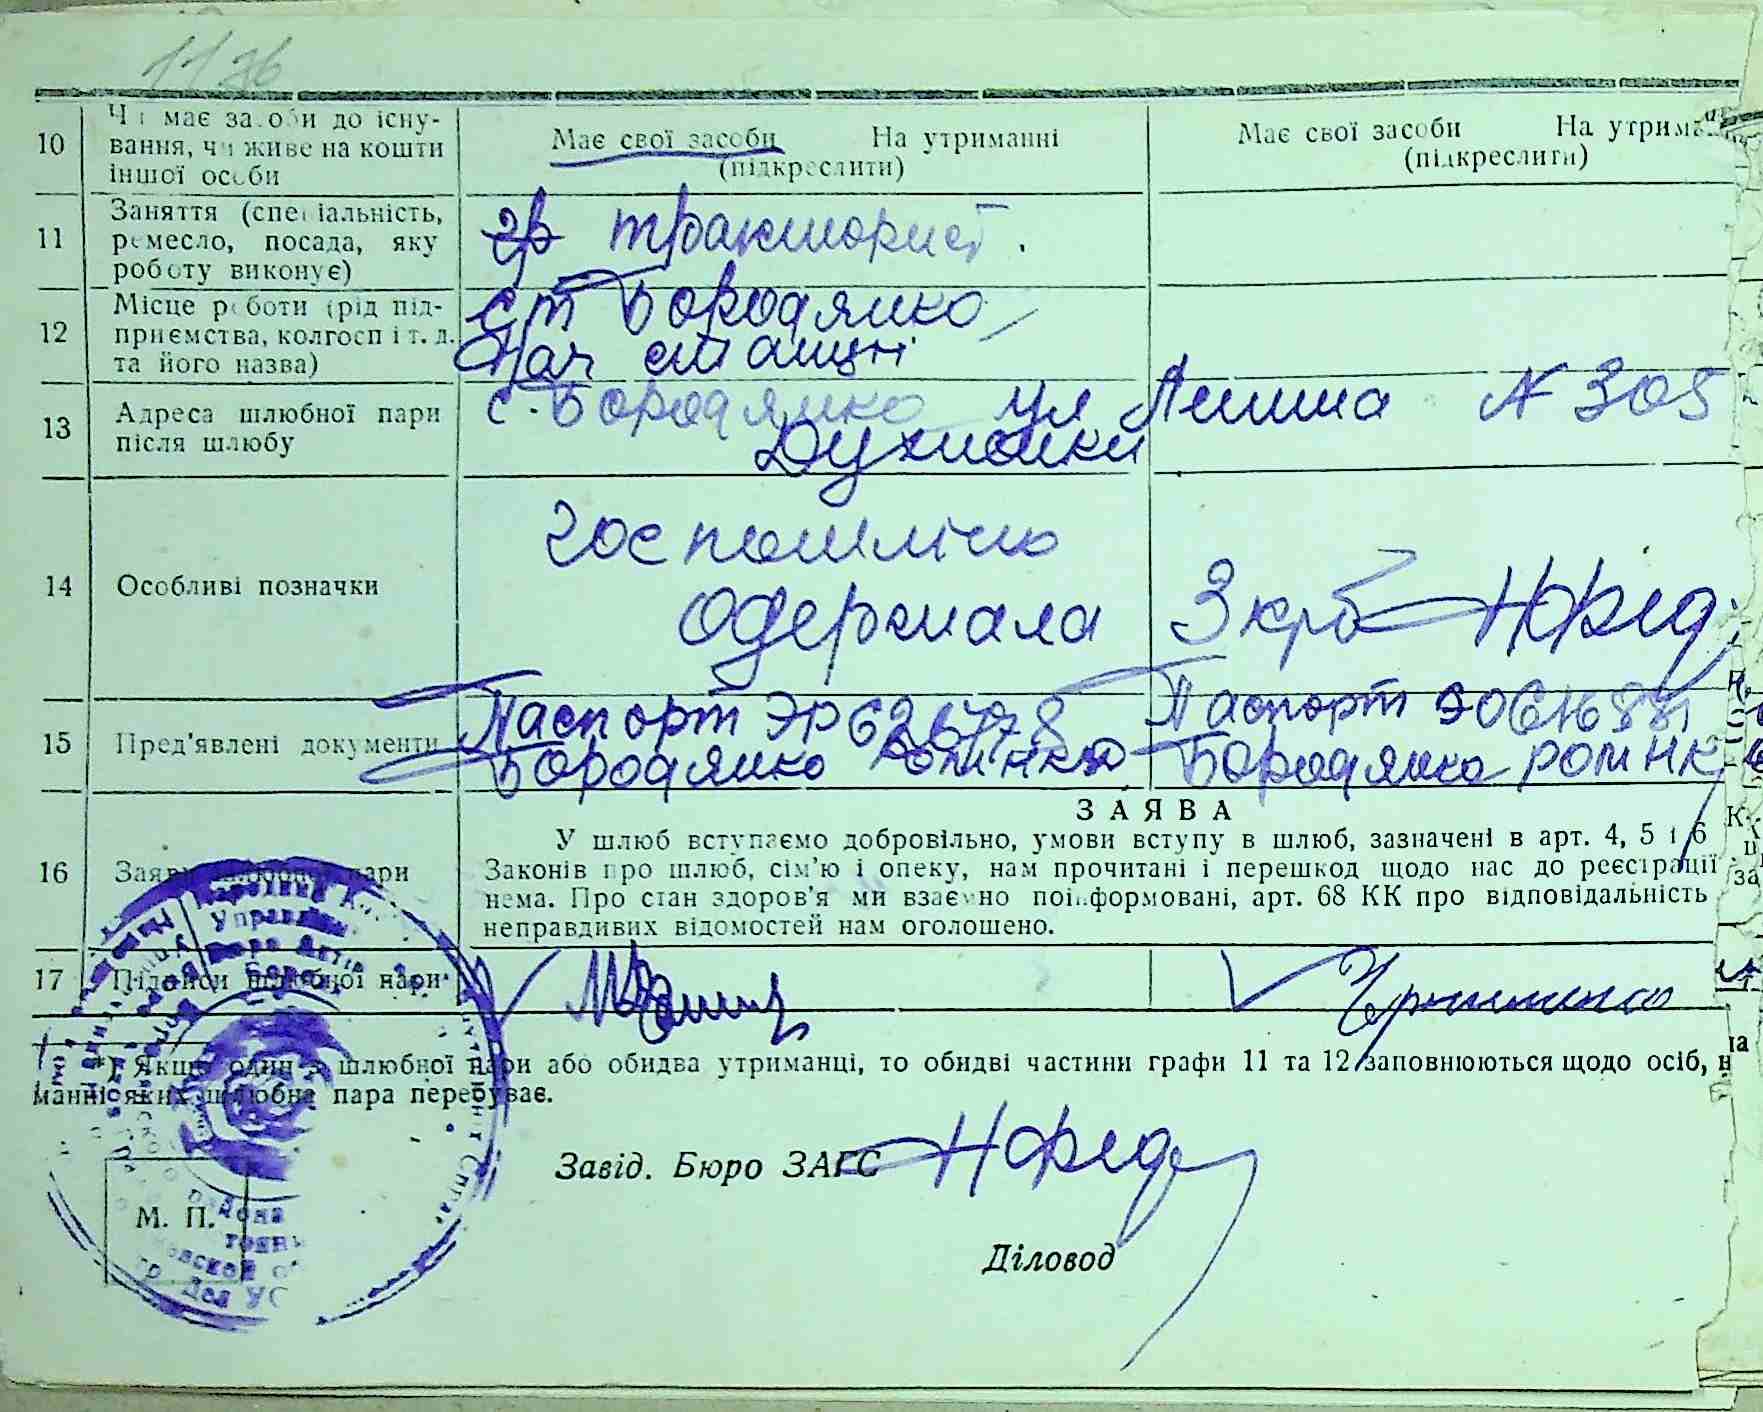 1126
10 Чи має засоби до існу-
вання, чи живе на кошти
іншої особи
Має свої засоби На утриманні
(підкреслити)
Має свої засоби На утрима
(підкреслити)
11 Заняття (спеціальність,
ремесло, посада, яку
роботу виконує)
тракторист.
12 Місце роботи (рід під-
приємства, колгосп і т. д.
та його назва)
ст Бородянка
Нач станції
13 Адреса шлюбної пари
після шлюбу
с. Бородянка ул Леніна N 305
14 Особливі позначки
госпошліно
одержала 3 крб НФід
15 Пред'явлені документи
Паспорт ЭР
Бородянко
Паспорт
Бородянка РОМНК
16 Заява шлюбної пари
ЗАЯВА
У шлюб вступаємо добровільно, умови вступу в шлюб, зазначені в арт. 4, 5 і 6
Законів про шлюб, сім'ю і опеку, нам прочитані і перешкод щодо нас до реєстрації
нема. Про стан здоров'я ми взаємно поінформовані, арт. 68 КК про відповідальність
неправдивих відомостей нам оголошено.
17 Підписи шлюбної пари
*) Якщо один з шлюбної пари або обидва утриманці, то обидві частини графи 11 та 12 заповнюються щодо осіб, н
манні яких шлюбна пара перебуває.
Завід. Бюро ЗАГС НФід
М. П.
Діловод